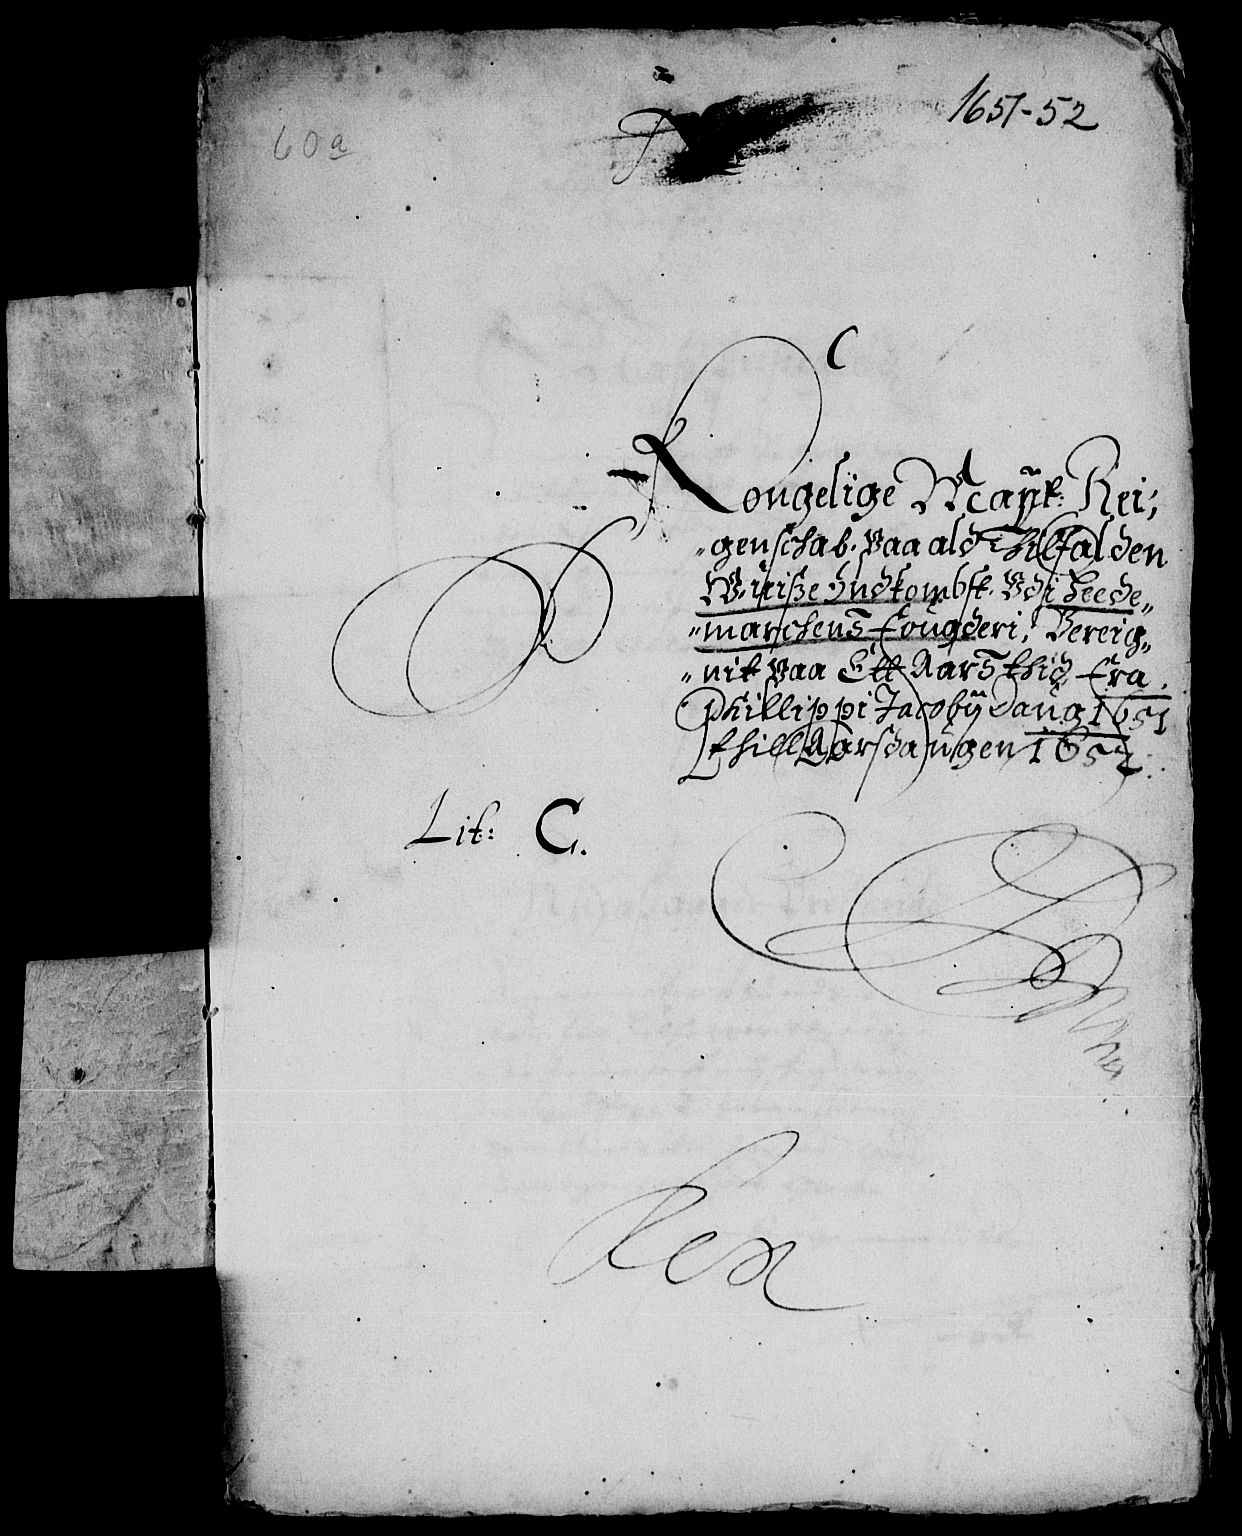 1651-52
60a
C
Kongelige Mayt: Rei;
"genschab. Paa ald Thilfalden
W.uisze Indkombst. Vdi Heede„
"marchens fougderi, Bereig„
"nit paa Ett Aars thid, fra
Phillippi Jacobij daug 1651
thill Aarsdaugen 1652
Lit: C.
Rex